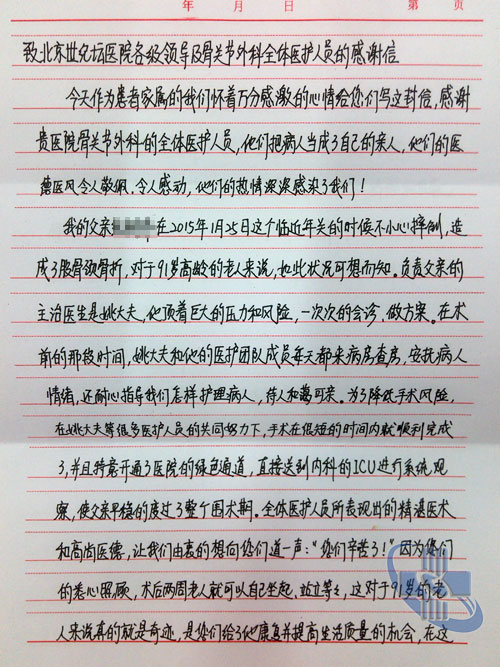 年 月 日 第 页
致北京世纪坛医院各级领导及骨关节外科全体医护人员的感谢信
今天作为患者家属的我们怀着万分感激的心情给您们写这封信，感谢
贵医院骨关节外科的全体医护人员，他们把病人当成了自己的亲人，他们的医
德医风令人敬佩、令人感动，他们的热情深深感染了我们！
我的父亲 在2015年1月25日这个临近年关的时候不小心摔倒，造
成了股骨颈骨折，对于91岁高龄的老人来说，如此状况可想而知。负责父亲的
主治医生是姚大夫，他顶着巨大的压力和风险，一次次的会诊、做方案。在术
前的那段时间，姚大夫和他的医护团队成员每天都来病房查房，安抚病人
情绪，还耐心指导我们怎样护理病人，待人和蔼可亲。为了降低手术风险，
在姚大夫等很多医护人员的共同努力下，手术在很短的时间内就顺利完成
了，并且特意开通了医院的绿色通道，直接送到内科的ICU进行系统观
察，使父亲平稳的度过了整个围术期。全体医护人员所表现出的精湛医术
和高尚医德，让我们由衷的想向您们道一声：“您们辛苦了！”因为您们
的悉心照顾，术后两周老人就可以自己坐起、站立等，这对于91岁的老
人来说真的就是奇迹，是您们给了他康复并提高生活质量的机会，在这